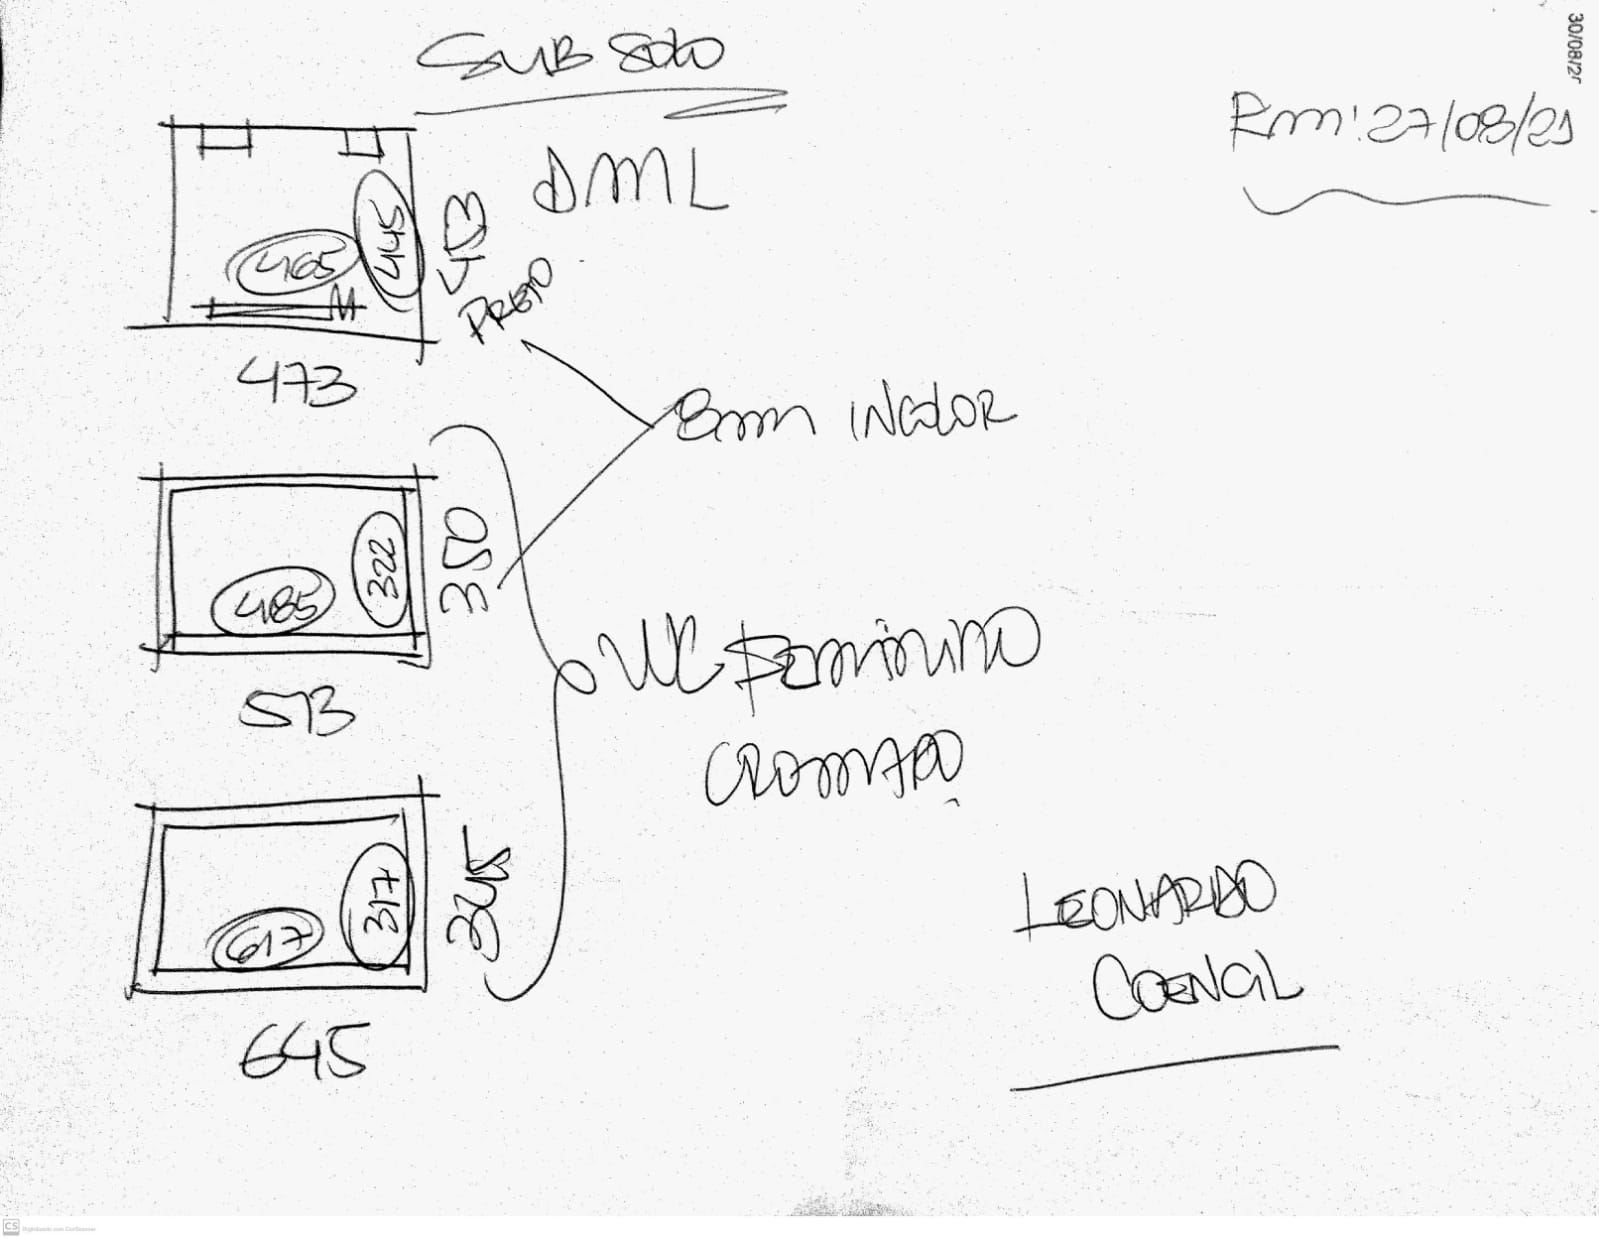 30/08/21
SUBSOLO
Rm: 27/08/21
DML
465
445
473
PRETO
8mm INCOLOR
485
322
350
513
WC FEMININO
CROMADO
617
317
345
645
LEONARDO
COENGIL
CS Digitalizado com CamScanner